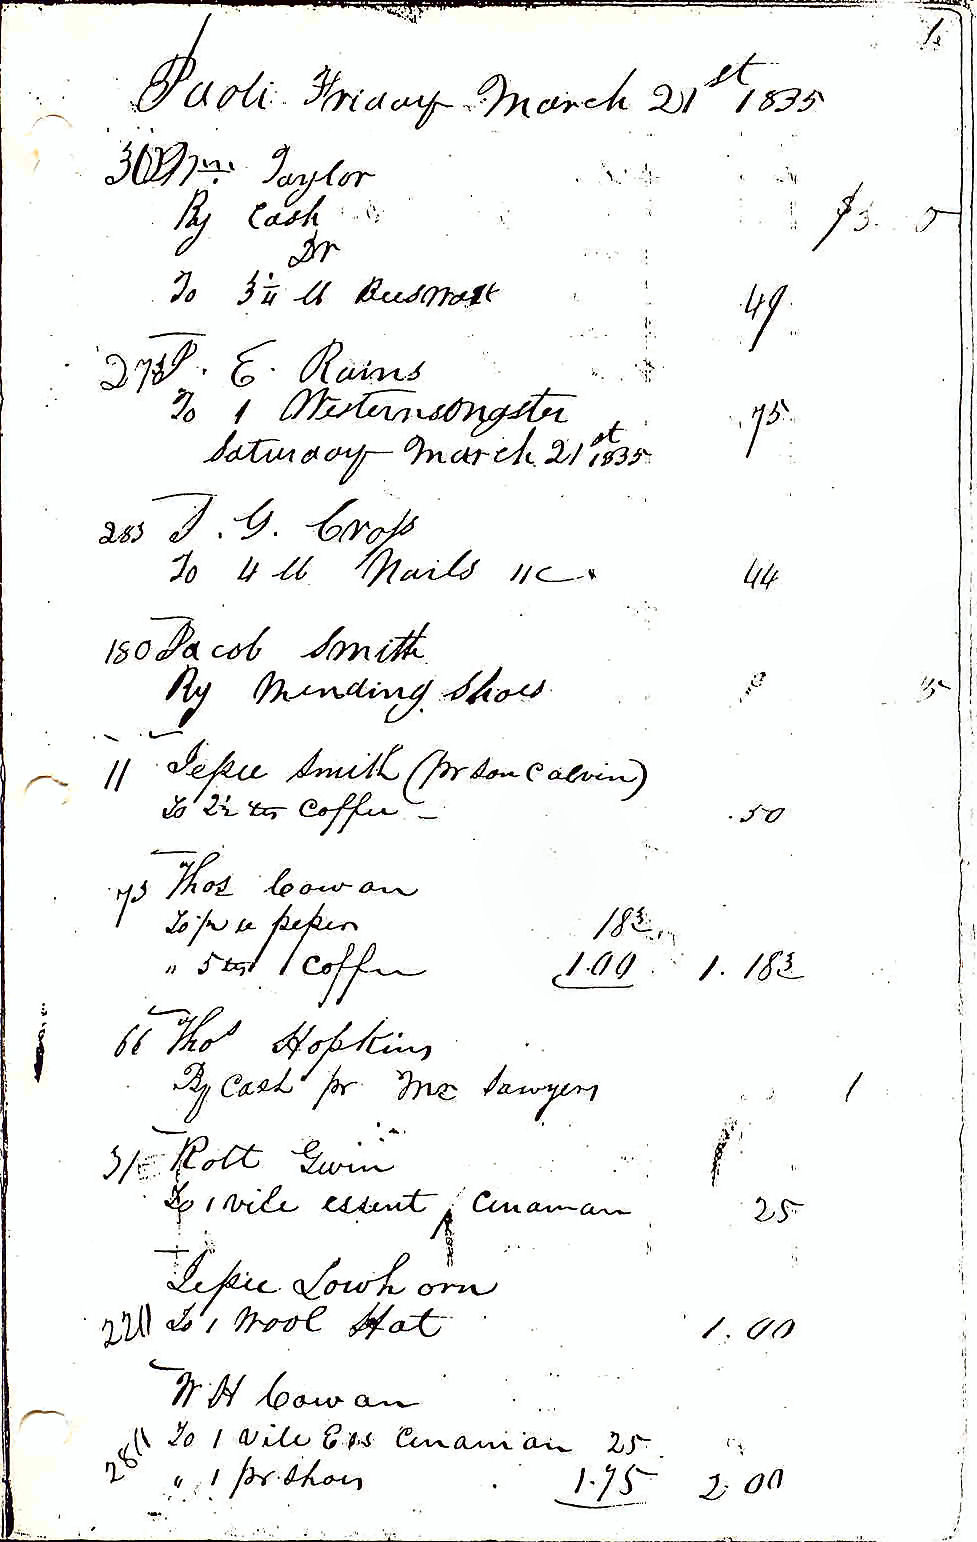 1.
Paoli Friday March 21st 1835
302 Wm. Taylor
By Cash $3. 0
Dr
To 3 1/4 lb Beeswax 49
273 P. E. Rains
To 1 Westernsongster 75
Saturday March 21st 1835
283 T. G. Cross
To 4 lb Nails 11c 44
180 Jacob Smith
By Mending Shoes 5
11 Jesse Smith (pr Son Calvin)
To 2 1/2 lbs Coffee - .50
73 Thos Cowan
To 1/2 lb peper 18 3/4
" 5 lbs Coffee 1.00 1. 18 3/4
66 Thos Hopkins
By Cash pr Mr Sawyers 1
31 Robt Gwin
To 1 vile essent Cinaman 25
Jesse Lowhorn
220 To 1 Wool Hat 1.00
W H Cowan
To 1 Vile Ess Cinaman 25
280 " 1 pr Shoes 1.75 2.00